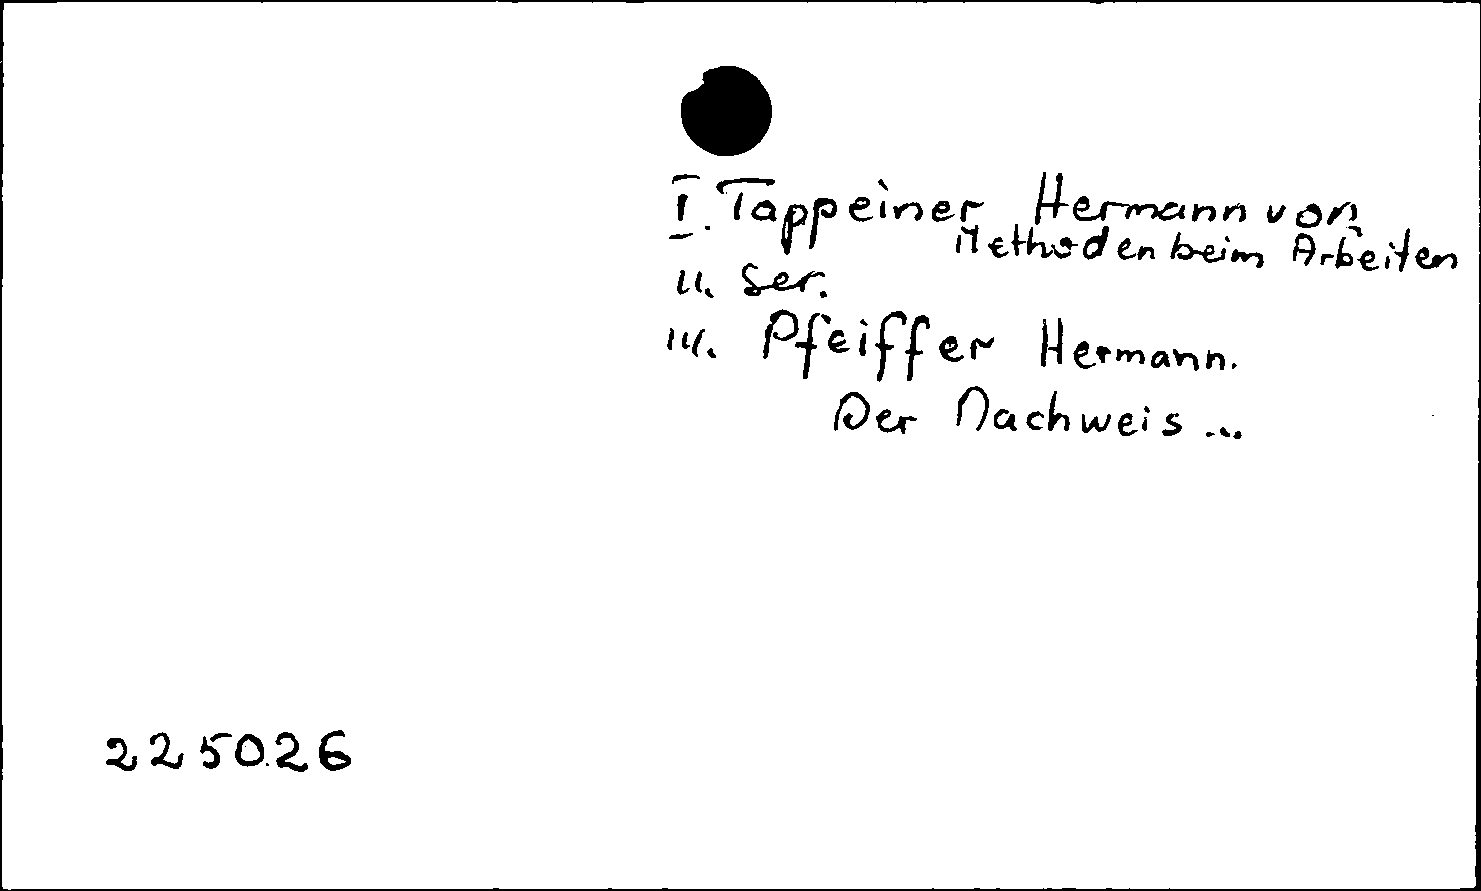 I. Tappeiner Hermann von
Methoden beim Arbeiten
II. Ser.
III. Pfeiffer Hermann.
Der Nachweis ...
225026